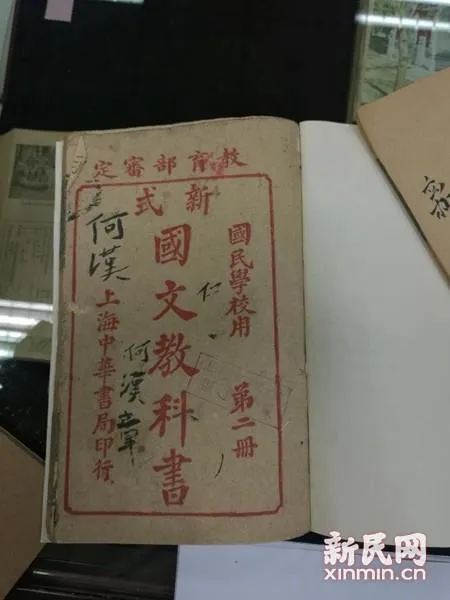 教育部審定
新式
國文教科書
國民學校用
第二冊
仁
何漢
何漢章
上海中華書局印行
新民网
xinmin.cn